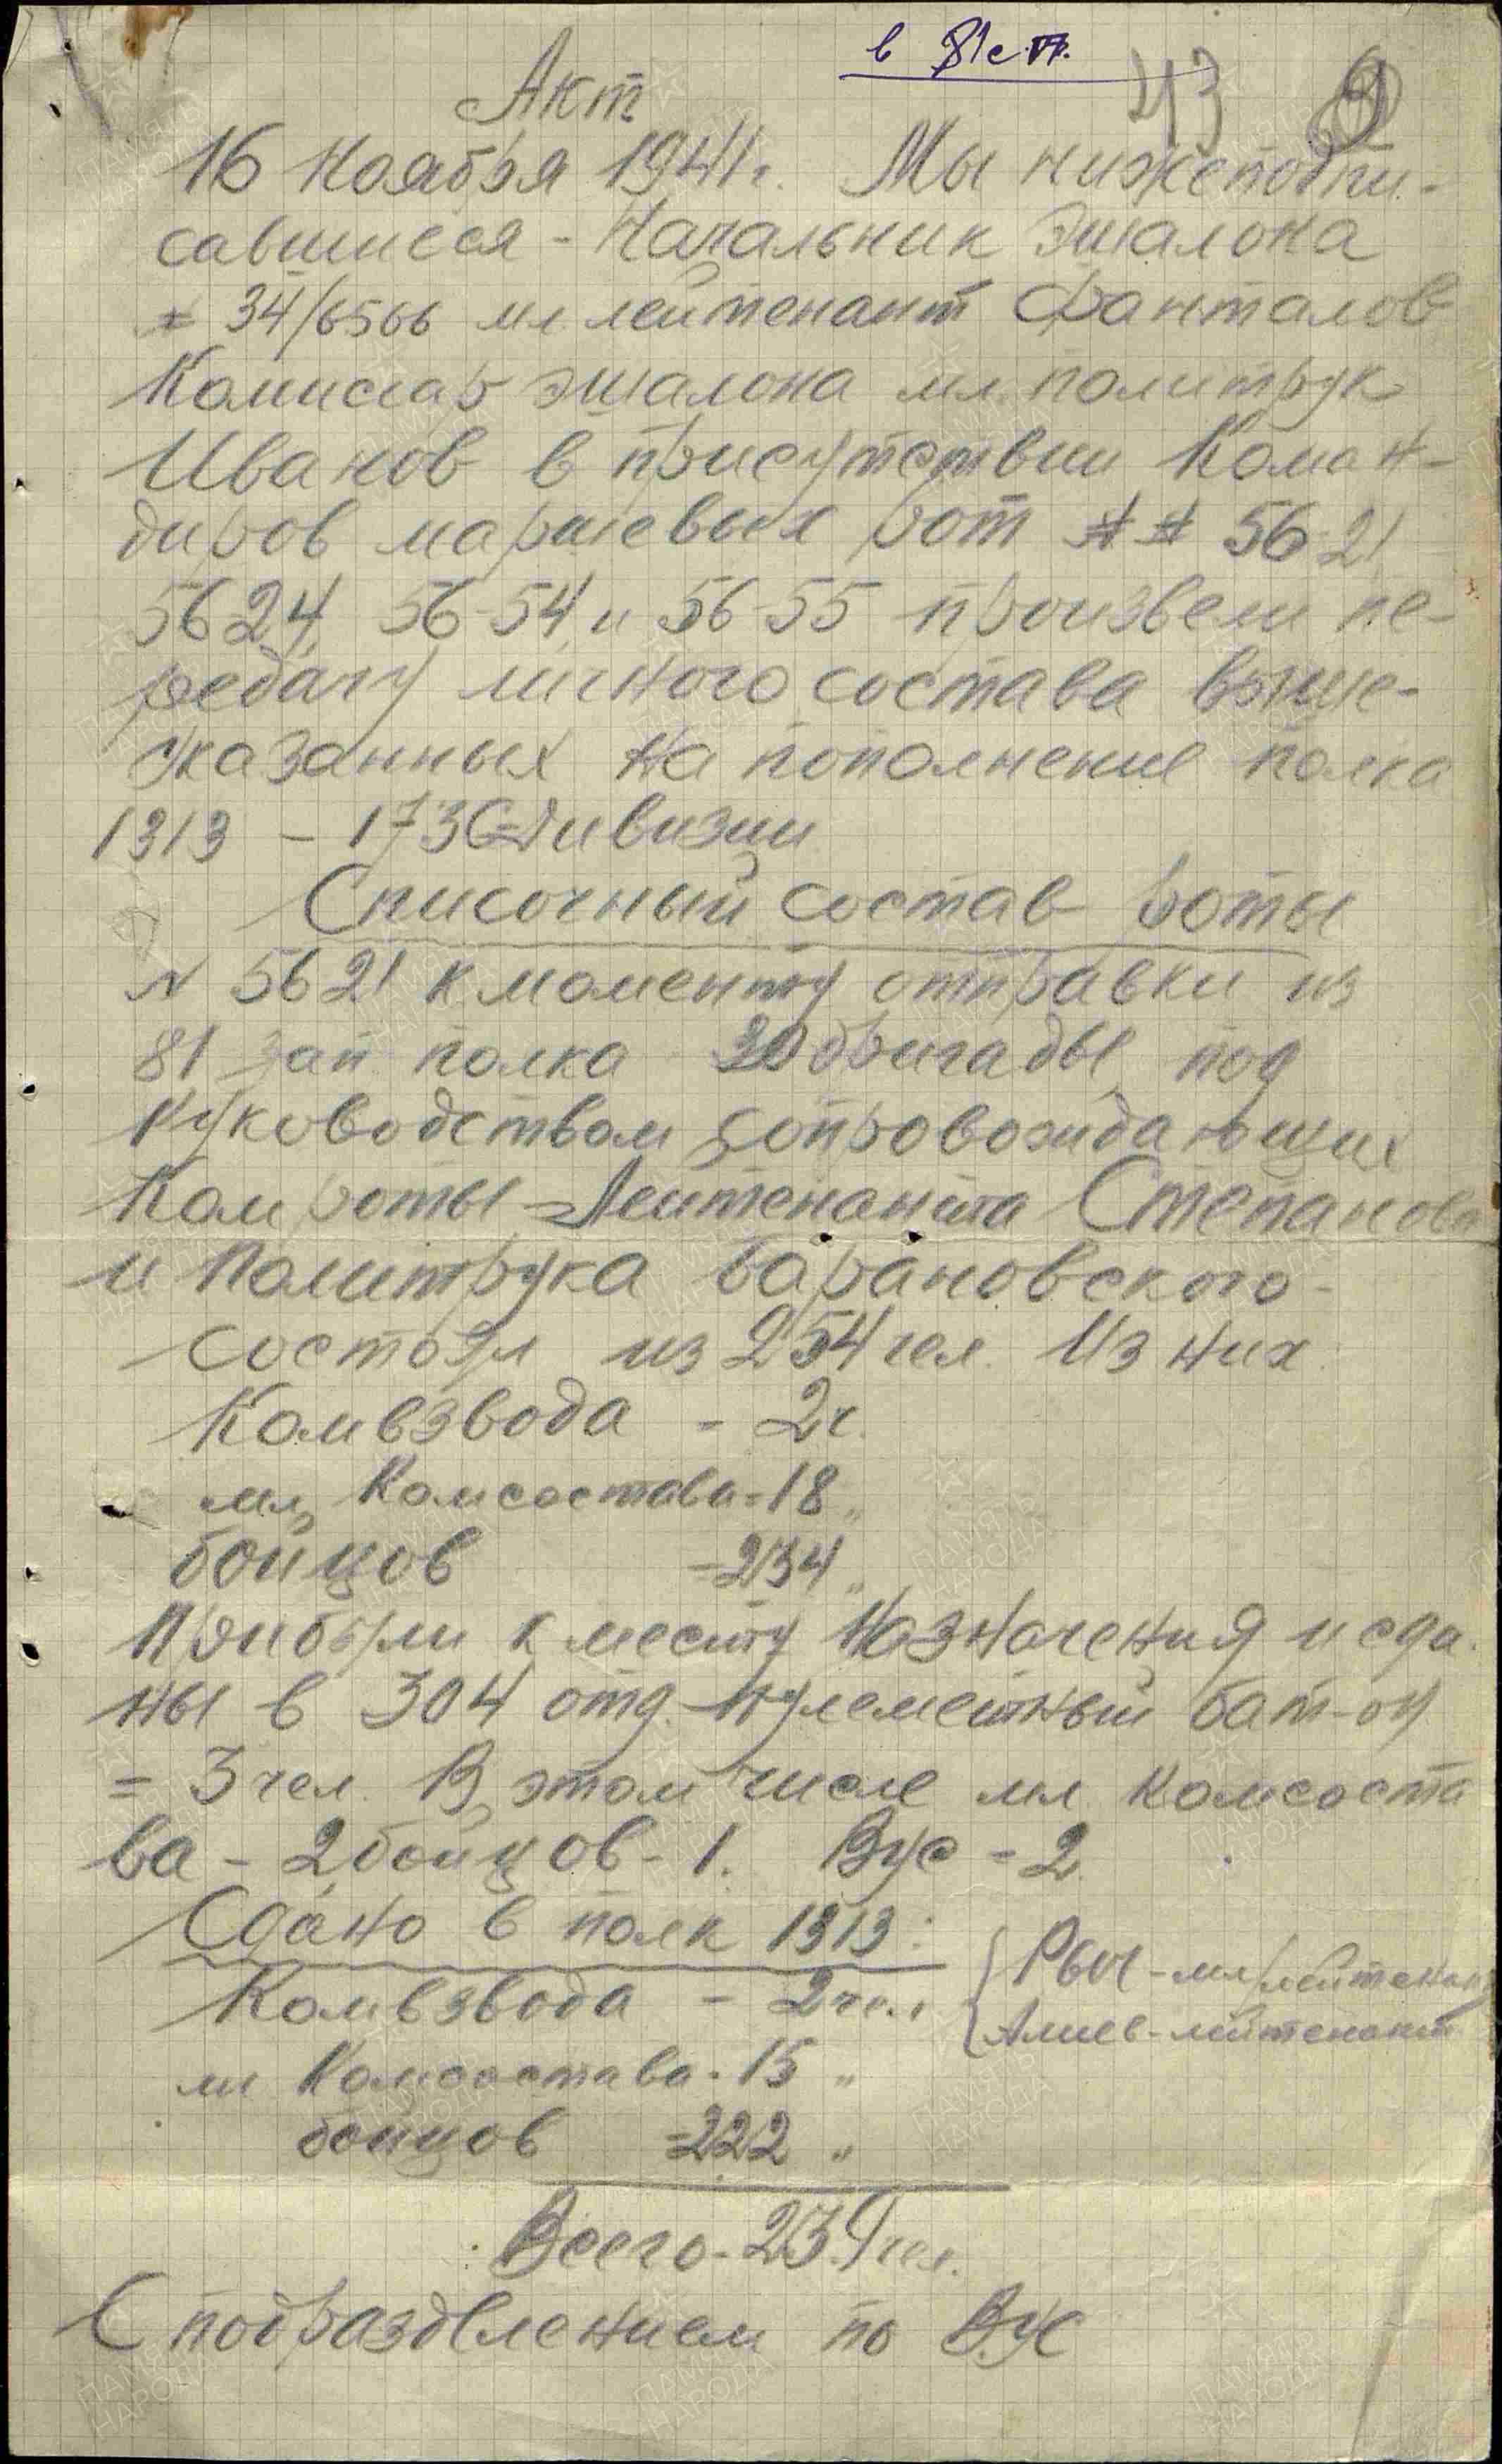 в 81 с.п.
43
Акт
16 Ноября 1941 г. Мы нижеподпи-
савшиеся - Начальник эшалона
№ 34/6566 мл. лейтенант Фанталов
Комиссар эшалона мл. политрук
Иванов в присутствии Коман-
диров маршевых рот №№ 56-21
5624, 56-54 и 56-55 произвели пе-
редачу личного состава выше-
указанных на пополнение полка
1313 - 173 Дивизии
Списочный состав роты
№ 5621 к моменту отправки из
81 зап полка 30 бригады под
руководством сопровождающих
Комроты - Лейтенанта Степанова
и Политрука Барановского -
состоял из 254 чел. Из них
Комвзвода - 2 ч.
мл. Комсостава - 18 "
бойцов - 234 "
Прибыли к месту назначения и сда-
ны в 304 отд. пулеметный бат-он
= 3 чел. В этом числе мл комсоста
ва - 2, бойцов - 1. Вус - 2.
Сдано в полк 1313:
Комвзвода - 2 чел.
мл Комсостава - 15 "
бойцов = 222 "
Рвач - мл лейтенант
Алиев - лейтенант
Всего - 239 чел.
С подразделением по В.УС